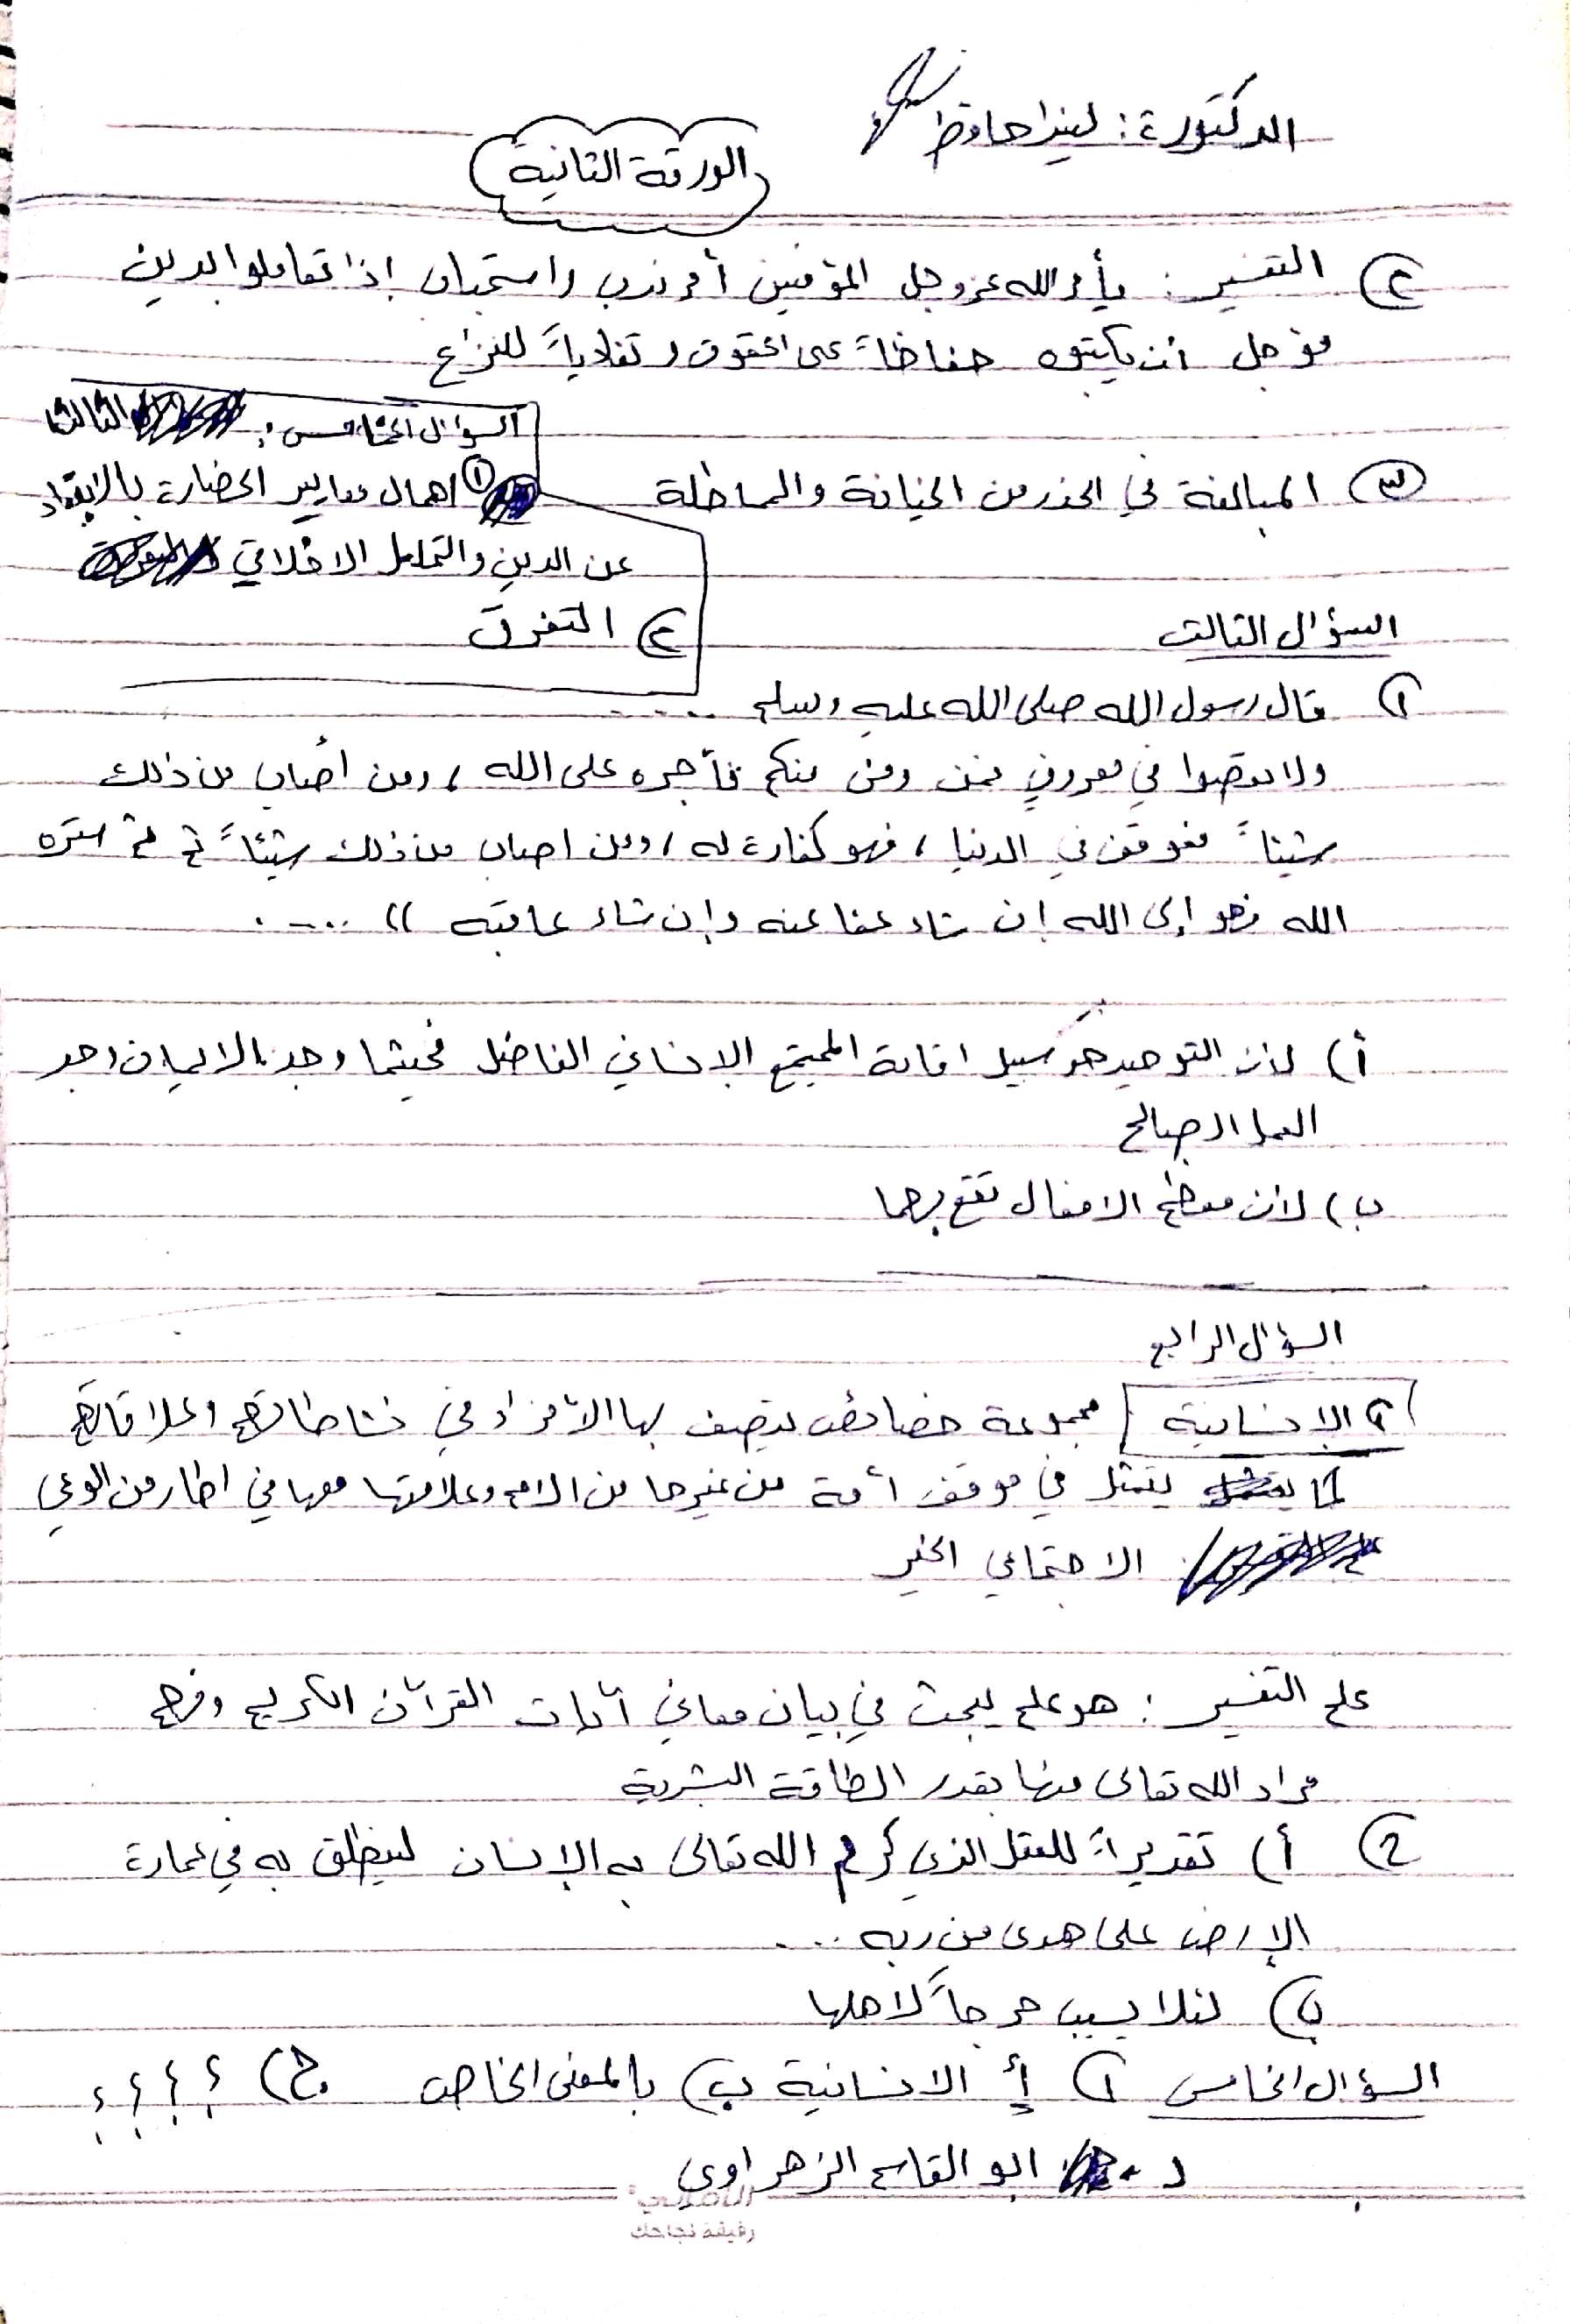 الدكتورة: ليندا حافظ
الورقة الثانية
② التفسير: يأمر الله عز وجل المؤمنين أمر ندب واستحباب إذا تعاملوا بدين
مؤجل أن يكتبوه حفاظاً على الحقوق وتفادياً للنزاع
السؤال الخامس: الثالث
① اهمال معايير الحضارة بالابتعاد
عن الدين والتكامل الاخلاقي
② التفرق
③ المبالغة في الحذر من الخيانة والمماطلة
السؤال الثالث
① قال رسول الله صلى الله عليه وسلم .....
ولا تعصوا في معروفٍ فمن وفى منكم فأجره على الله، ومن أصاب من ذلك
شيئاً فعوقب في الدنيا، فهو كفارة له، ومن اصاب من ذلك شيئاً ثم ستره
الله فهو إلى الله إن شاء عفا عنه وإن شاء عاقبه )) .....
أ) لأن التوحيد هو سبيل اقامة المجتمع الإنساني الفاضل فحيثما وجد الايمان وجد
العمل الصالح
ب) لأن معظم الافعال تقع بهما
السؤال الرابع
١ الإنسانية مجموعة خصائص يتصف بها الأفراد في نشاطاتهم وعلاقاتهم
كما يتمثل في موقف أمة من غيرها من الامم وعلاقتها معها في اطار من الوعي
الاجتماعي الخير
علم التفسير: هو علم يبحث في بيان معاني آيات القرآن الكريم وفهم
مراد الله تعالى منها بقدر الطاقة البشرية
② أ) تقديراً للعقل الذي كرم الله تعالى به الإنسان لينطلق به في عمارة
الارض على هدى من ربه ...
ب) لئلا يسبب حرجاً لاهلها
السؤال الخامس ① أ الانسانية ب) بالمعنى الخاص ج) ؟؟؟؟
د - ابو القاسم الزهراوي
رفيقة نجاحك